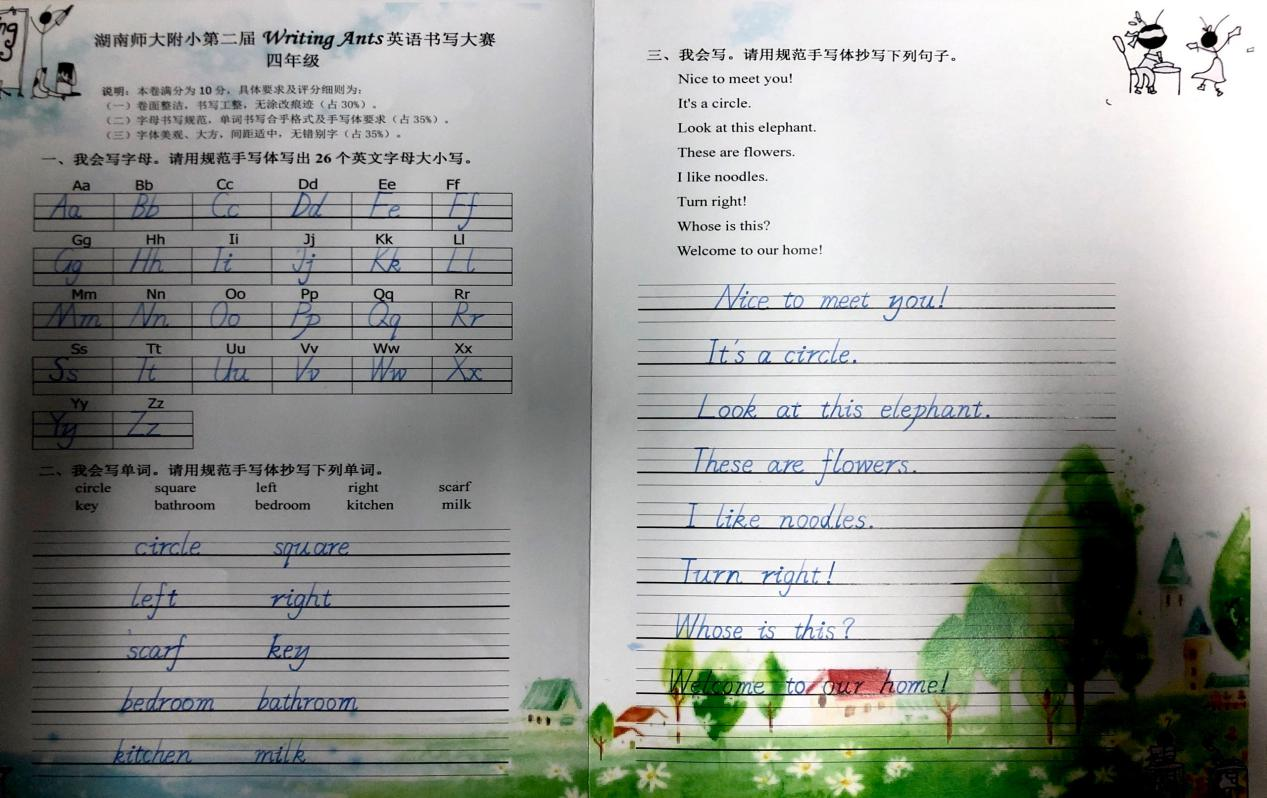 湖南师大附小第二届 Writing Ants 英语书写大赛
四年级
说明：本卷满分为 10 分，具体要求及评分细则为：
（一）卷面整洁，书写工整，无涂改痕迹（占 30%）。
（二）字母书写规范，单词书写合乎格式及手写体要求（占 35%）。
（三）字体美观、大方，间距适中，无错别字（占 35%）。
一、我会写字母。请用规范手写体写出 26 个英文字母大小写。
Aa Bb Cc Dd Ee Ff
Aa Bb Cc Dd Ee Ff
Gg Hh Ii Jj Kk Ll
Gg Hh Ii Jj Kk Ll
Mm Nn Oo Pp Qq Rr
Mm Nn Oo Pp Qq Rr
Ss Tt Uu Vv Ww Xx
Ss Tt Uu Vv Ww Xx
Yy Zz
Yy Zz
二、我会写单词。请用规范手写体抄写下列单词。
circle square left right scarf
key bathroom bedroom kitchen milk
circle square
left right
scarf key
bedroom bathroom
kitchen milk
三、我会写。请用规范手写体抄写下列句子。
Nice to meet you!
It's a circle.
Look at this elephant.
These are flowers.
I like noodles.
Turn right!
Whose is this?
Welcome to our home!
Nice to meet you!
It's a circle.
Look at this elephant.
These are flowers.
I like noodles.
Turn right!
Whose is this?
Welcome to our home!